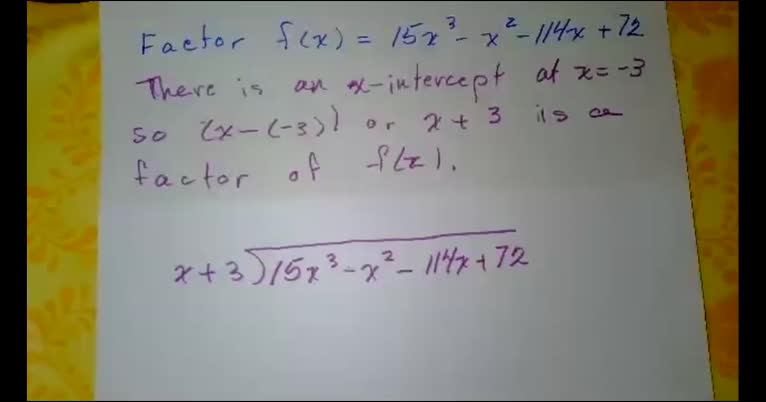 Factor f(x) = 15x³ - x² - 114x + 72
There is an x-intercept at x = -3
so (x - (-3)) or x + 3 is a
factor of f(x).
x + 3 ) 15x³ - x² - 114x + 72